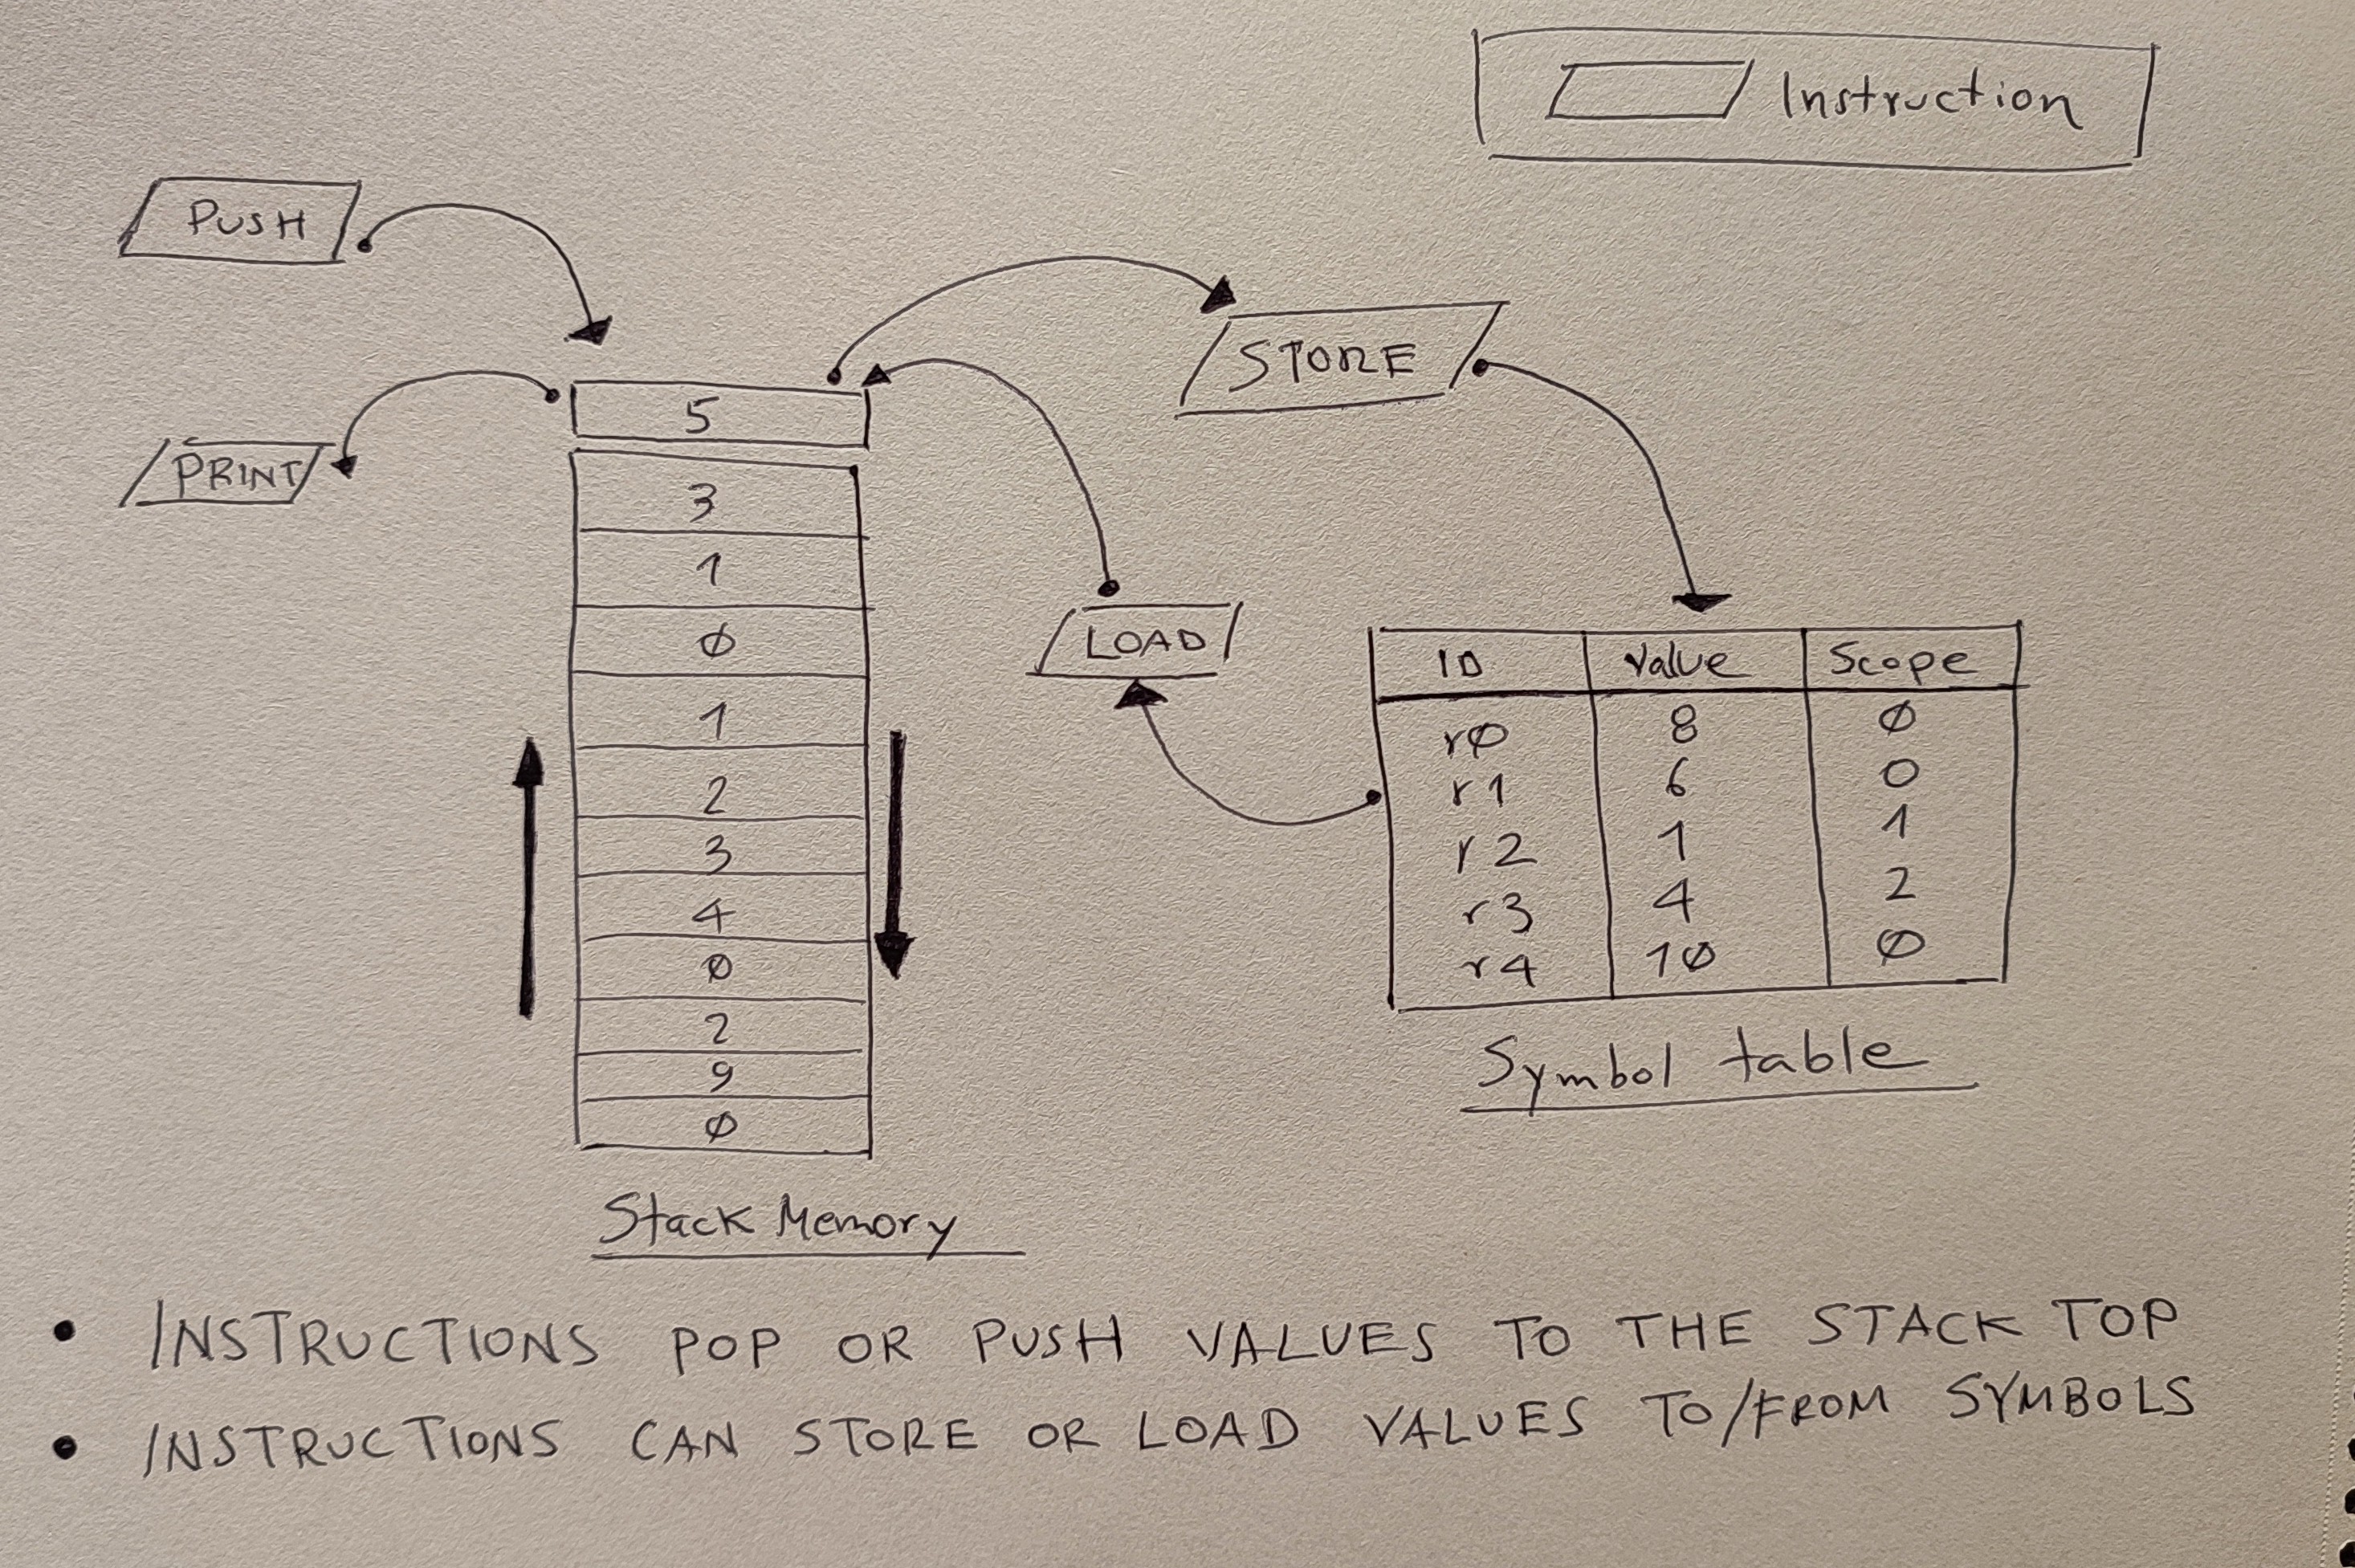 Instruction
PUSH
PRINT
STORE
LOAD
5
3
1
Ø
1
2
3
4
Ø
2
9
Ø
Stack Memory
ID Value Scope
rØ 8 Ø
r1 6 0
r2 1 1
r3 4 2
r4 1Ø Ø
Symbol table
• INSTRUCTIONS POP OR PUSH VALUES TO THE STACK TOP
• INSTRUCTIONS CAN STORE OR LOAD VALUES TO/FROM SYMBOLS